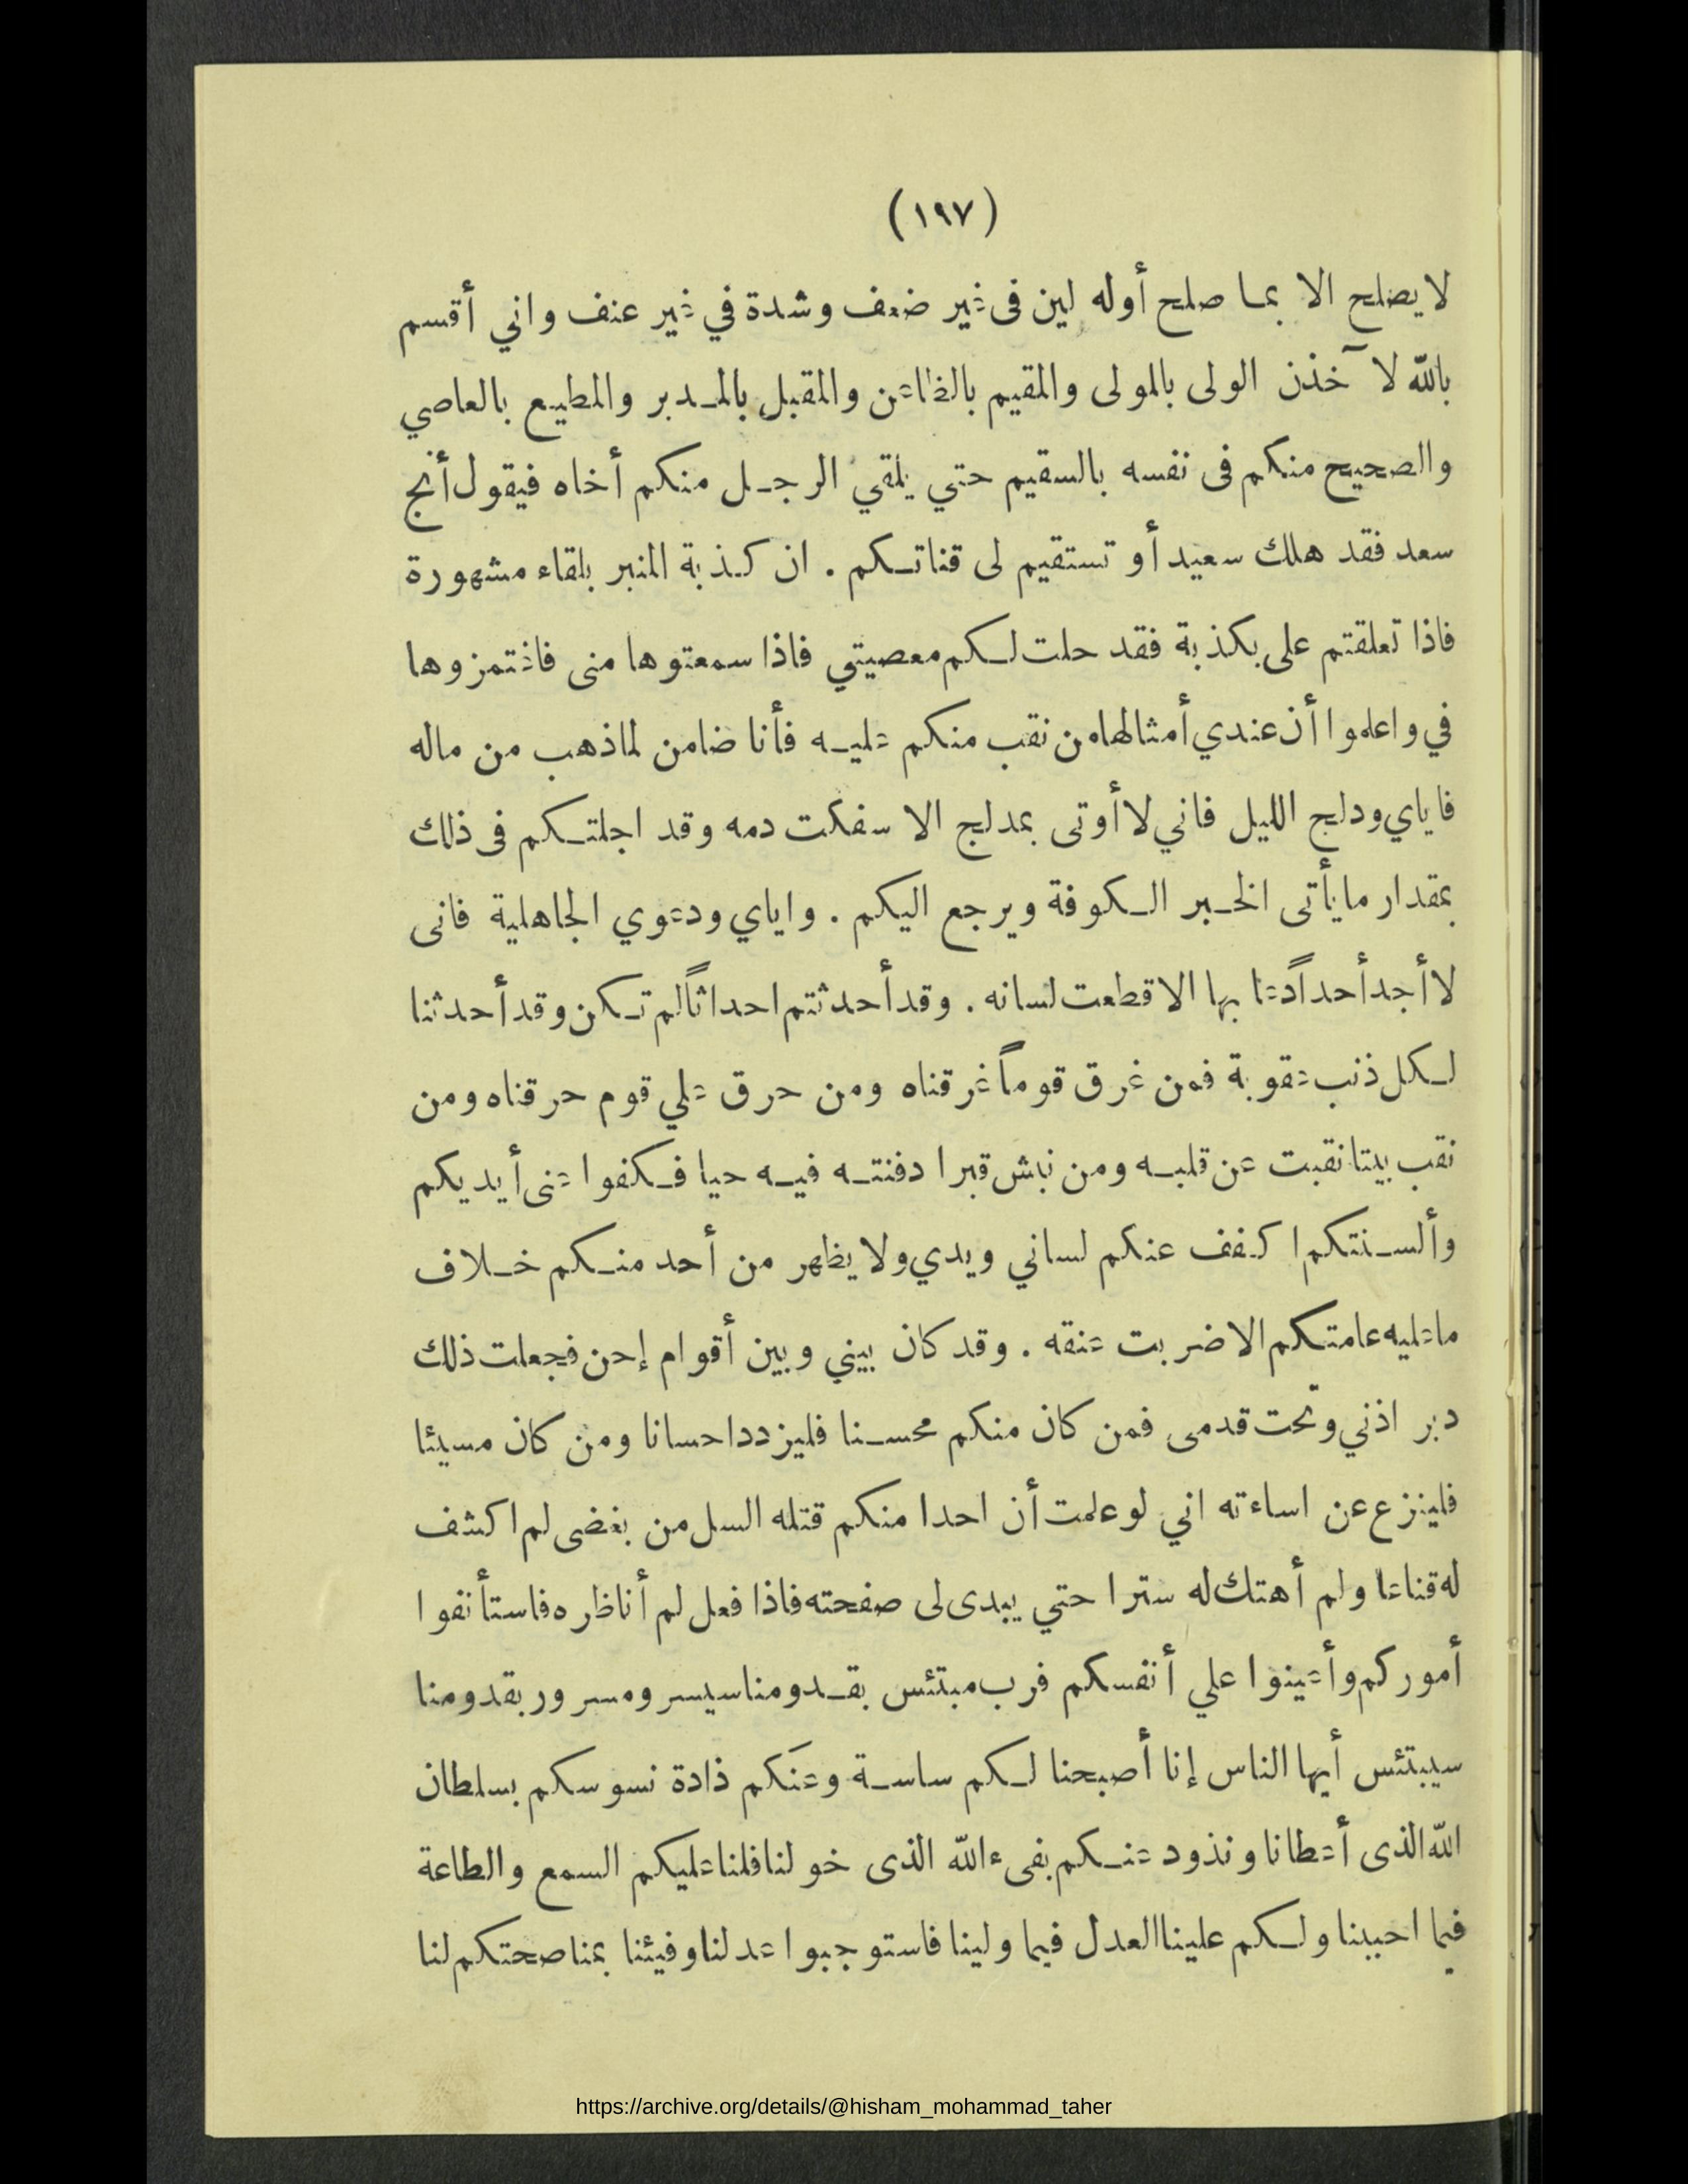 (١٩٧)
لا يصلح الا بما صلح أوله لين فى غير ضعف وشدة في غير عنف واني أقسم
بالله لا آخذن الولى بالمولى والمقيم بالظاعن والمقبل بالمدبر والمطيع بالعاصي
والصحيح منكم فى نفسه بالسقيم حتي يلقي الرجل منكم أخاه فيقول أنج
سعد فقد هلك سعيد أو تستقيم لى قناتكم . ان كذبة المنبر بلقاء مشهورة
فاذا تعلقتم على بكذبة فقد حلت لكم معصيتي فاذا سمعتوها منى فاغتمزوها
في واعلموا أن عندي أمثالها من نقب منكم عليه فأنا ضامن لما ذهب من ماله
فاياي ودلج الليل فاني لا أوتى بمدلج الا سفكت دمه وقد اجلتكم فى ذلك
بمقدار ما يأتى الخبر الكوفة ويرجع اليكم . واياي ودعوي الجاهلية فانى
لا أجد أحداً دعا بها الا قطعت لسانه . وقد أحدثتم احداثاً لم تكن وقد أحدثنا
لكل ذنب عقوبة فمن غرق قوماً غرقناه ومن حرق علي قوم حرقناه ومن
نقب بيتا نقبت عن قلبه ومن نبش قبرا دفنته فيه حيا فكفوا عنى أيديكم
وألسنتكم اكفف عنكم لساني ويدي ولا يظهر من أحد منكم خلاف
ما عليه عامتكم الا ضربت عنقه . وقد كان بيني وبين أقوام إحن فجعلت ذلك
دبر اذني وتحت قدمى فمن كان منكم محسنا فليزدد احسانا ومن كان مسيئا
فلينزع عن اساءته اني لو علمت أن احدا منكم قتله السل من بغضى لم اكشف
له قناعا ولم أهتك له سترا حتي يبدى لى صفحته فاذا فعل لم أناظره فاستأنفوا
أموركم وأعينوا علي أنفسكم فرب مبتئس بقدومنا سيسر ومسرور بقدومنا
سيبتئس أيها الناس إنا أصبحنا لكم ساسة وعَنكم ذادة نسوسكم بسلطان
الله الذى أعطانا ونذود عنكم بفىء الله الذى خولنا فلنا عليكم السمع والطاعة
فيما احببنا ولكم علينا العدل فيما ولينا فاستوجبوا عدلنا وفيئنا بمناصحتكم لنا
https://archive.org/details/@hisham_mohammad_taher